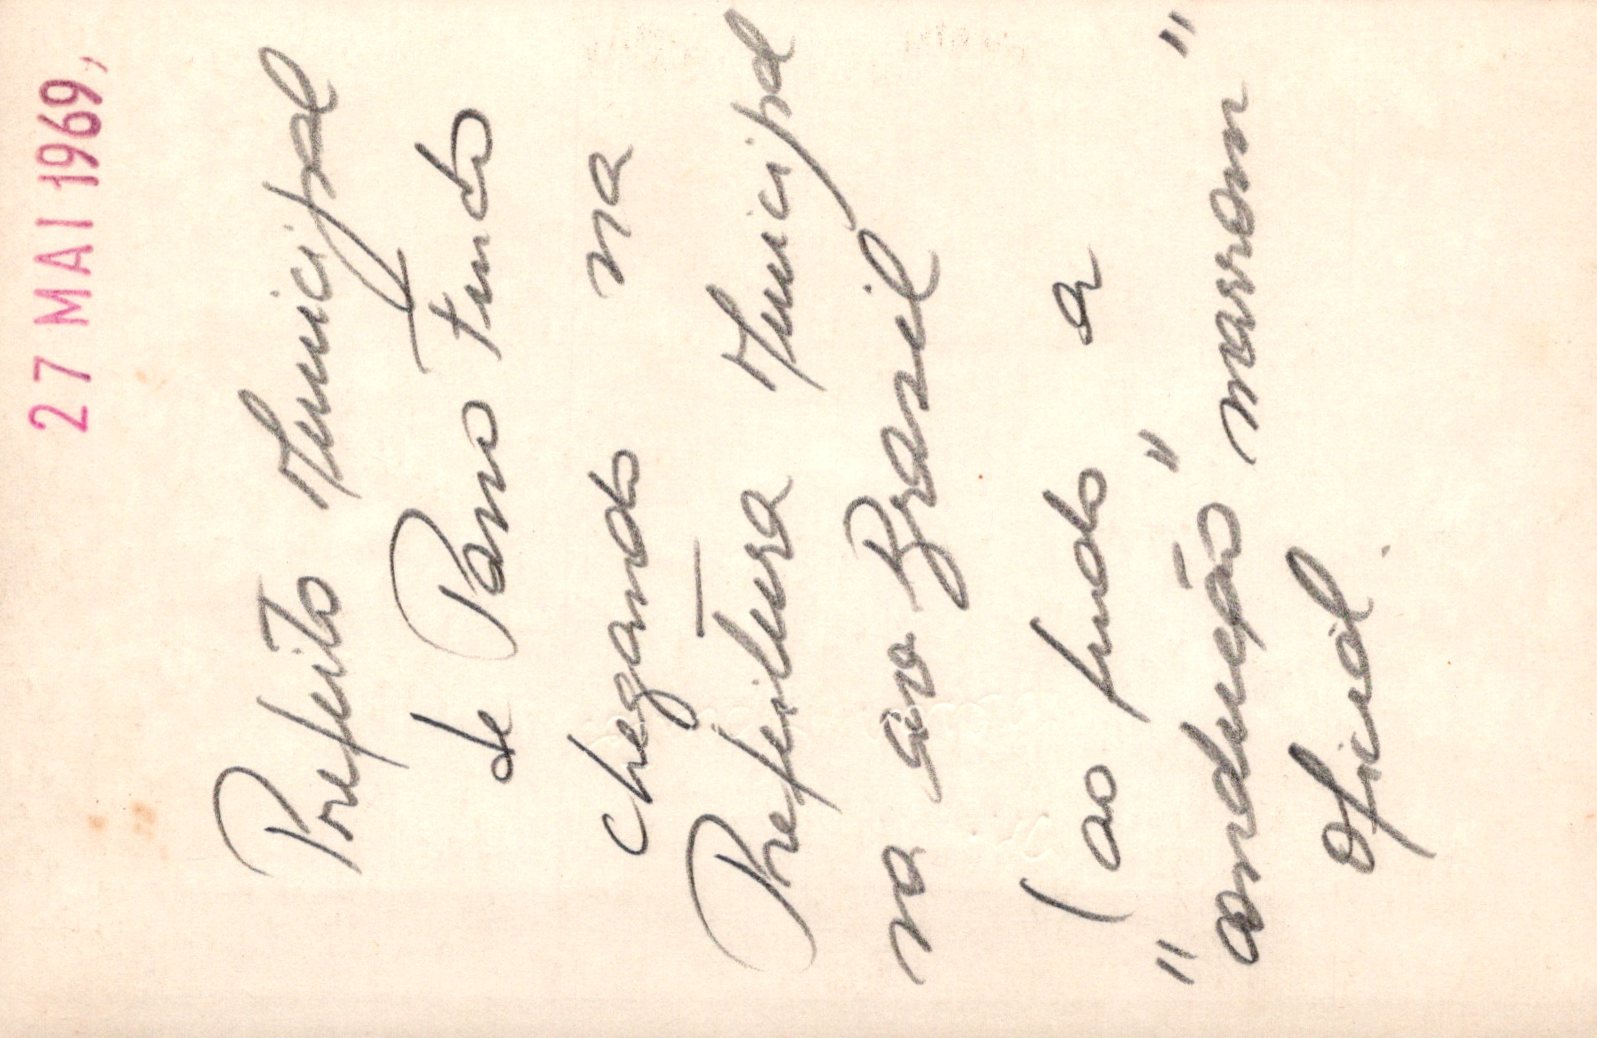 27 MAI 1969
Prefeito Municipal
de Passo Fundo
chegando na
Prefeitura Municipal
na av Brasil
(ao fundo a
"condução" marrom"
oficial.